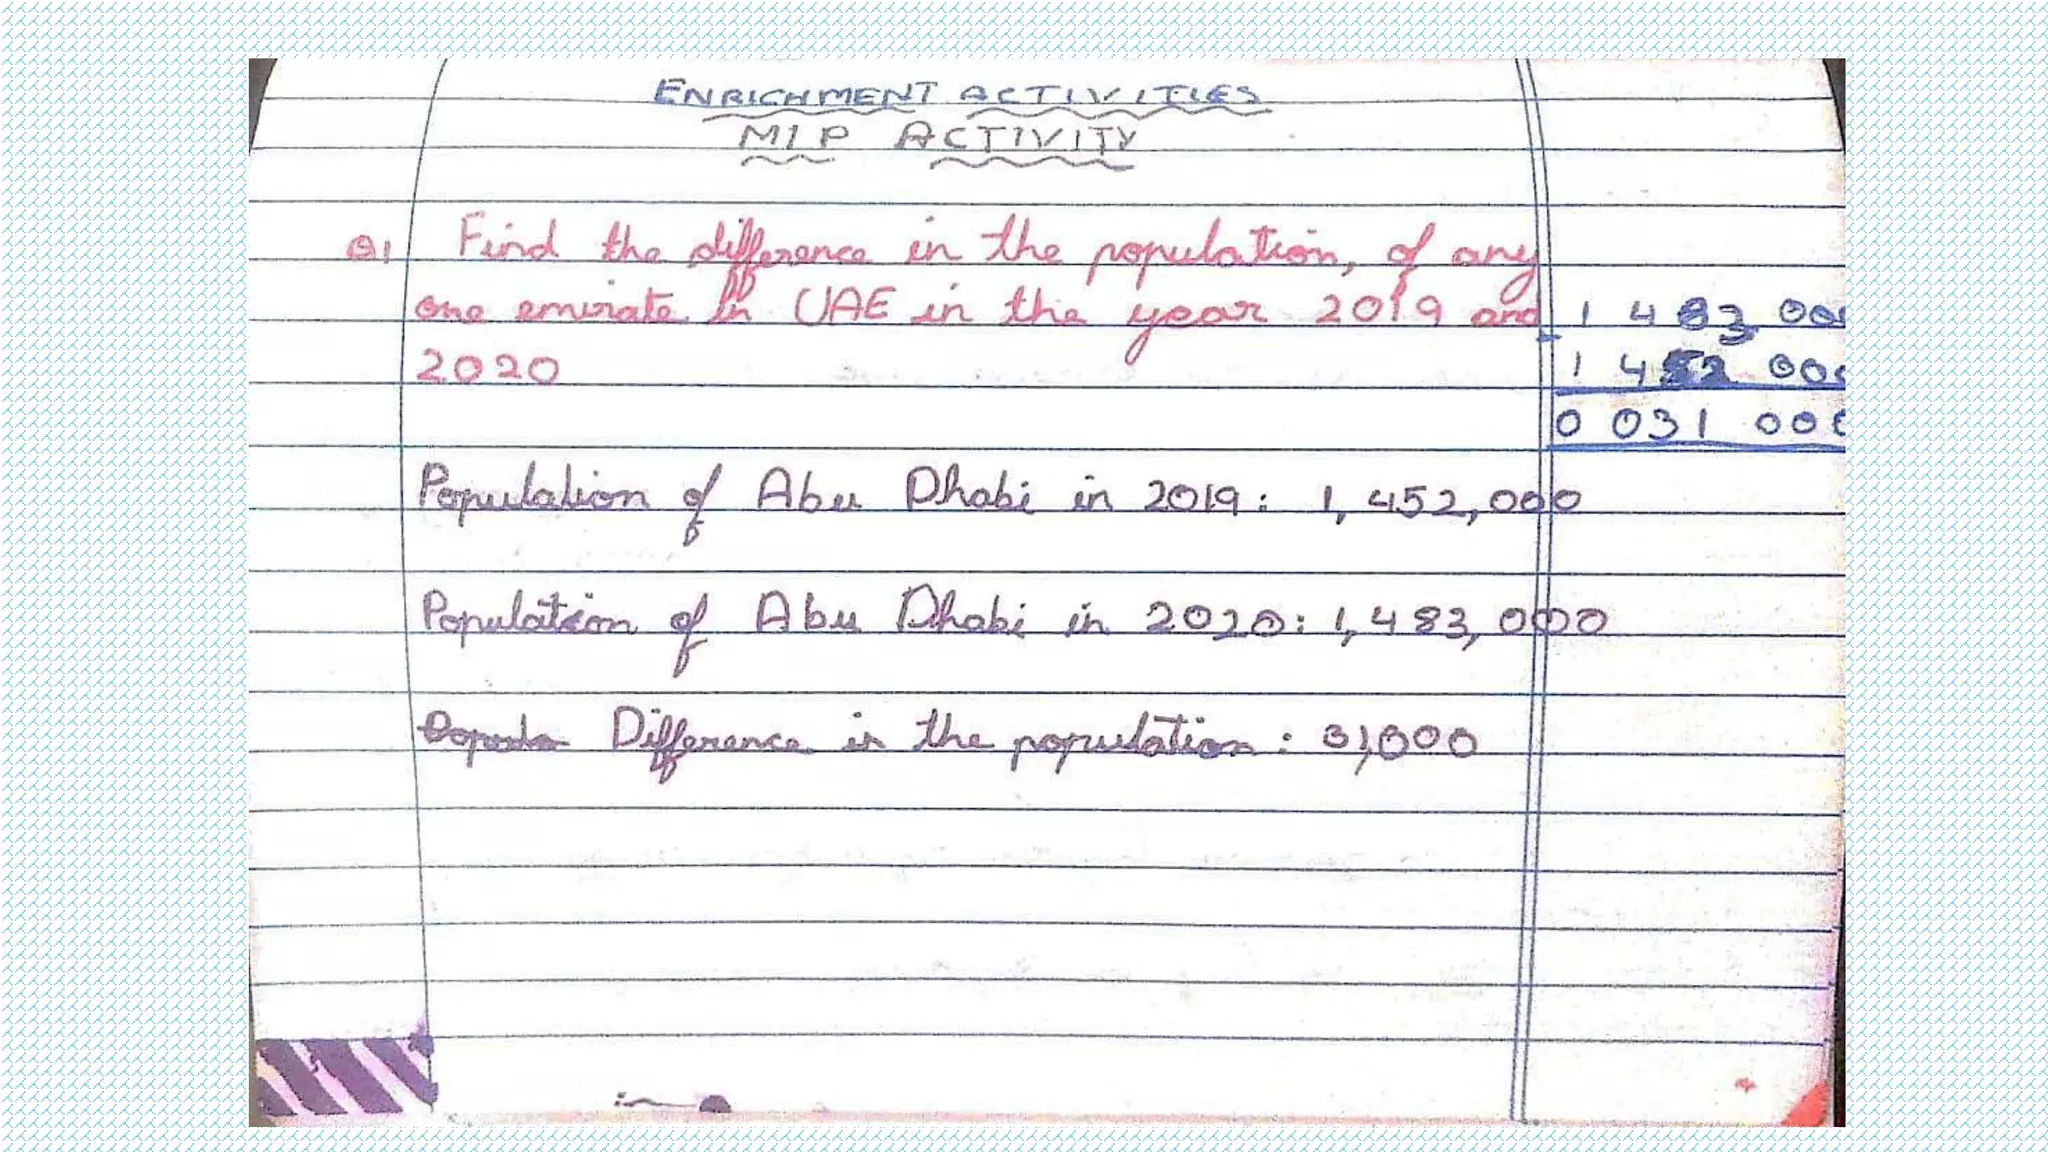 ENRICHMENT ACTIVITIES
MIP ACTIVITY
Q1 Find the difference in the population, of any
one emirate in UAE in the year 2019 and
2020
1 483 000
- 1 452 000
0 031 000
Population of Abu Dhabi in 2019: 1,452,000
Population of Abu Dhabi in 2020: 1,483,000
Difference in the population: 31,000